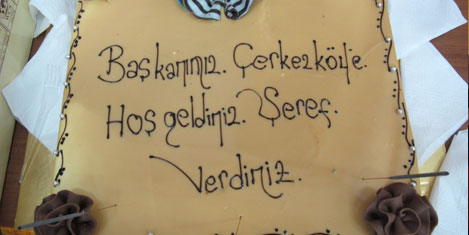 Başkanımız. Çerkezköy'e.
Hoş geldiniz. Şeref.
Verdiniz.